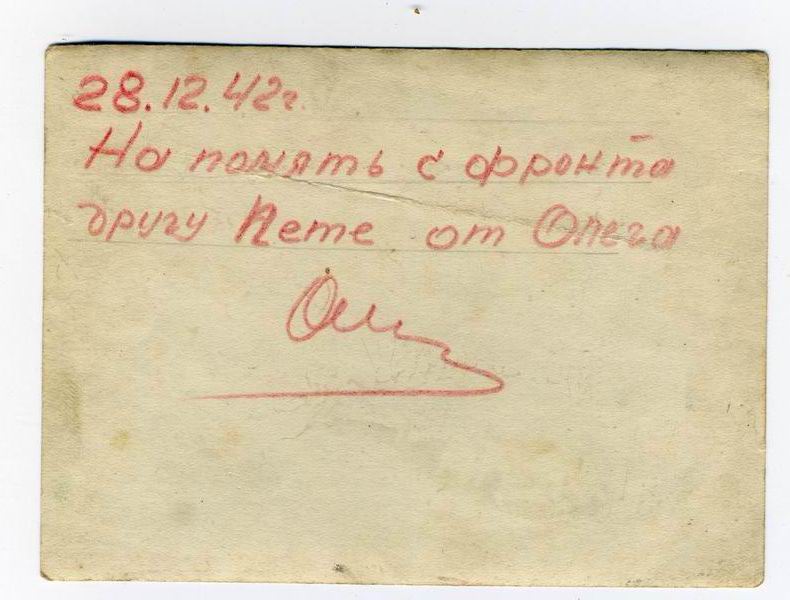 28.12.42г.
На память с фронта
другу Пете от Олега